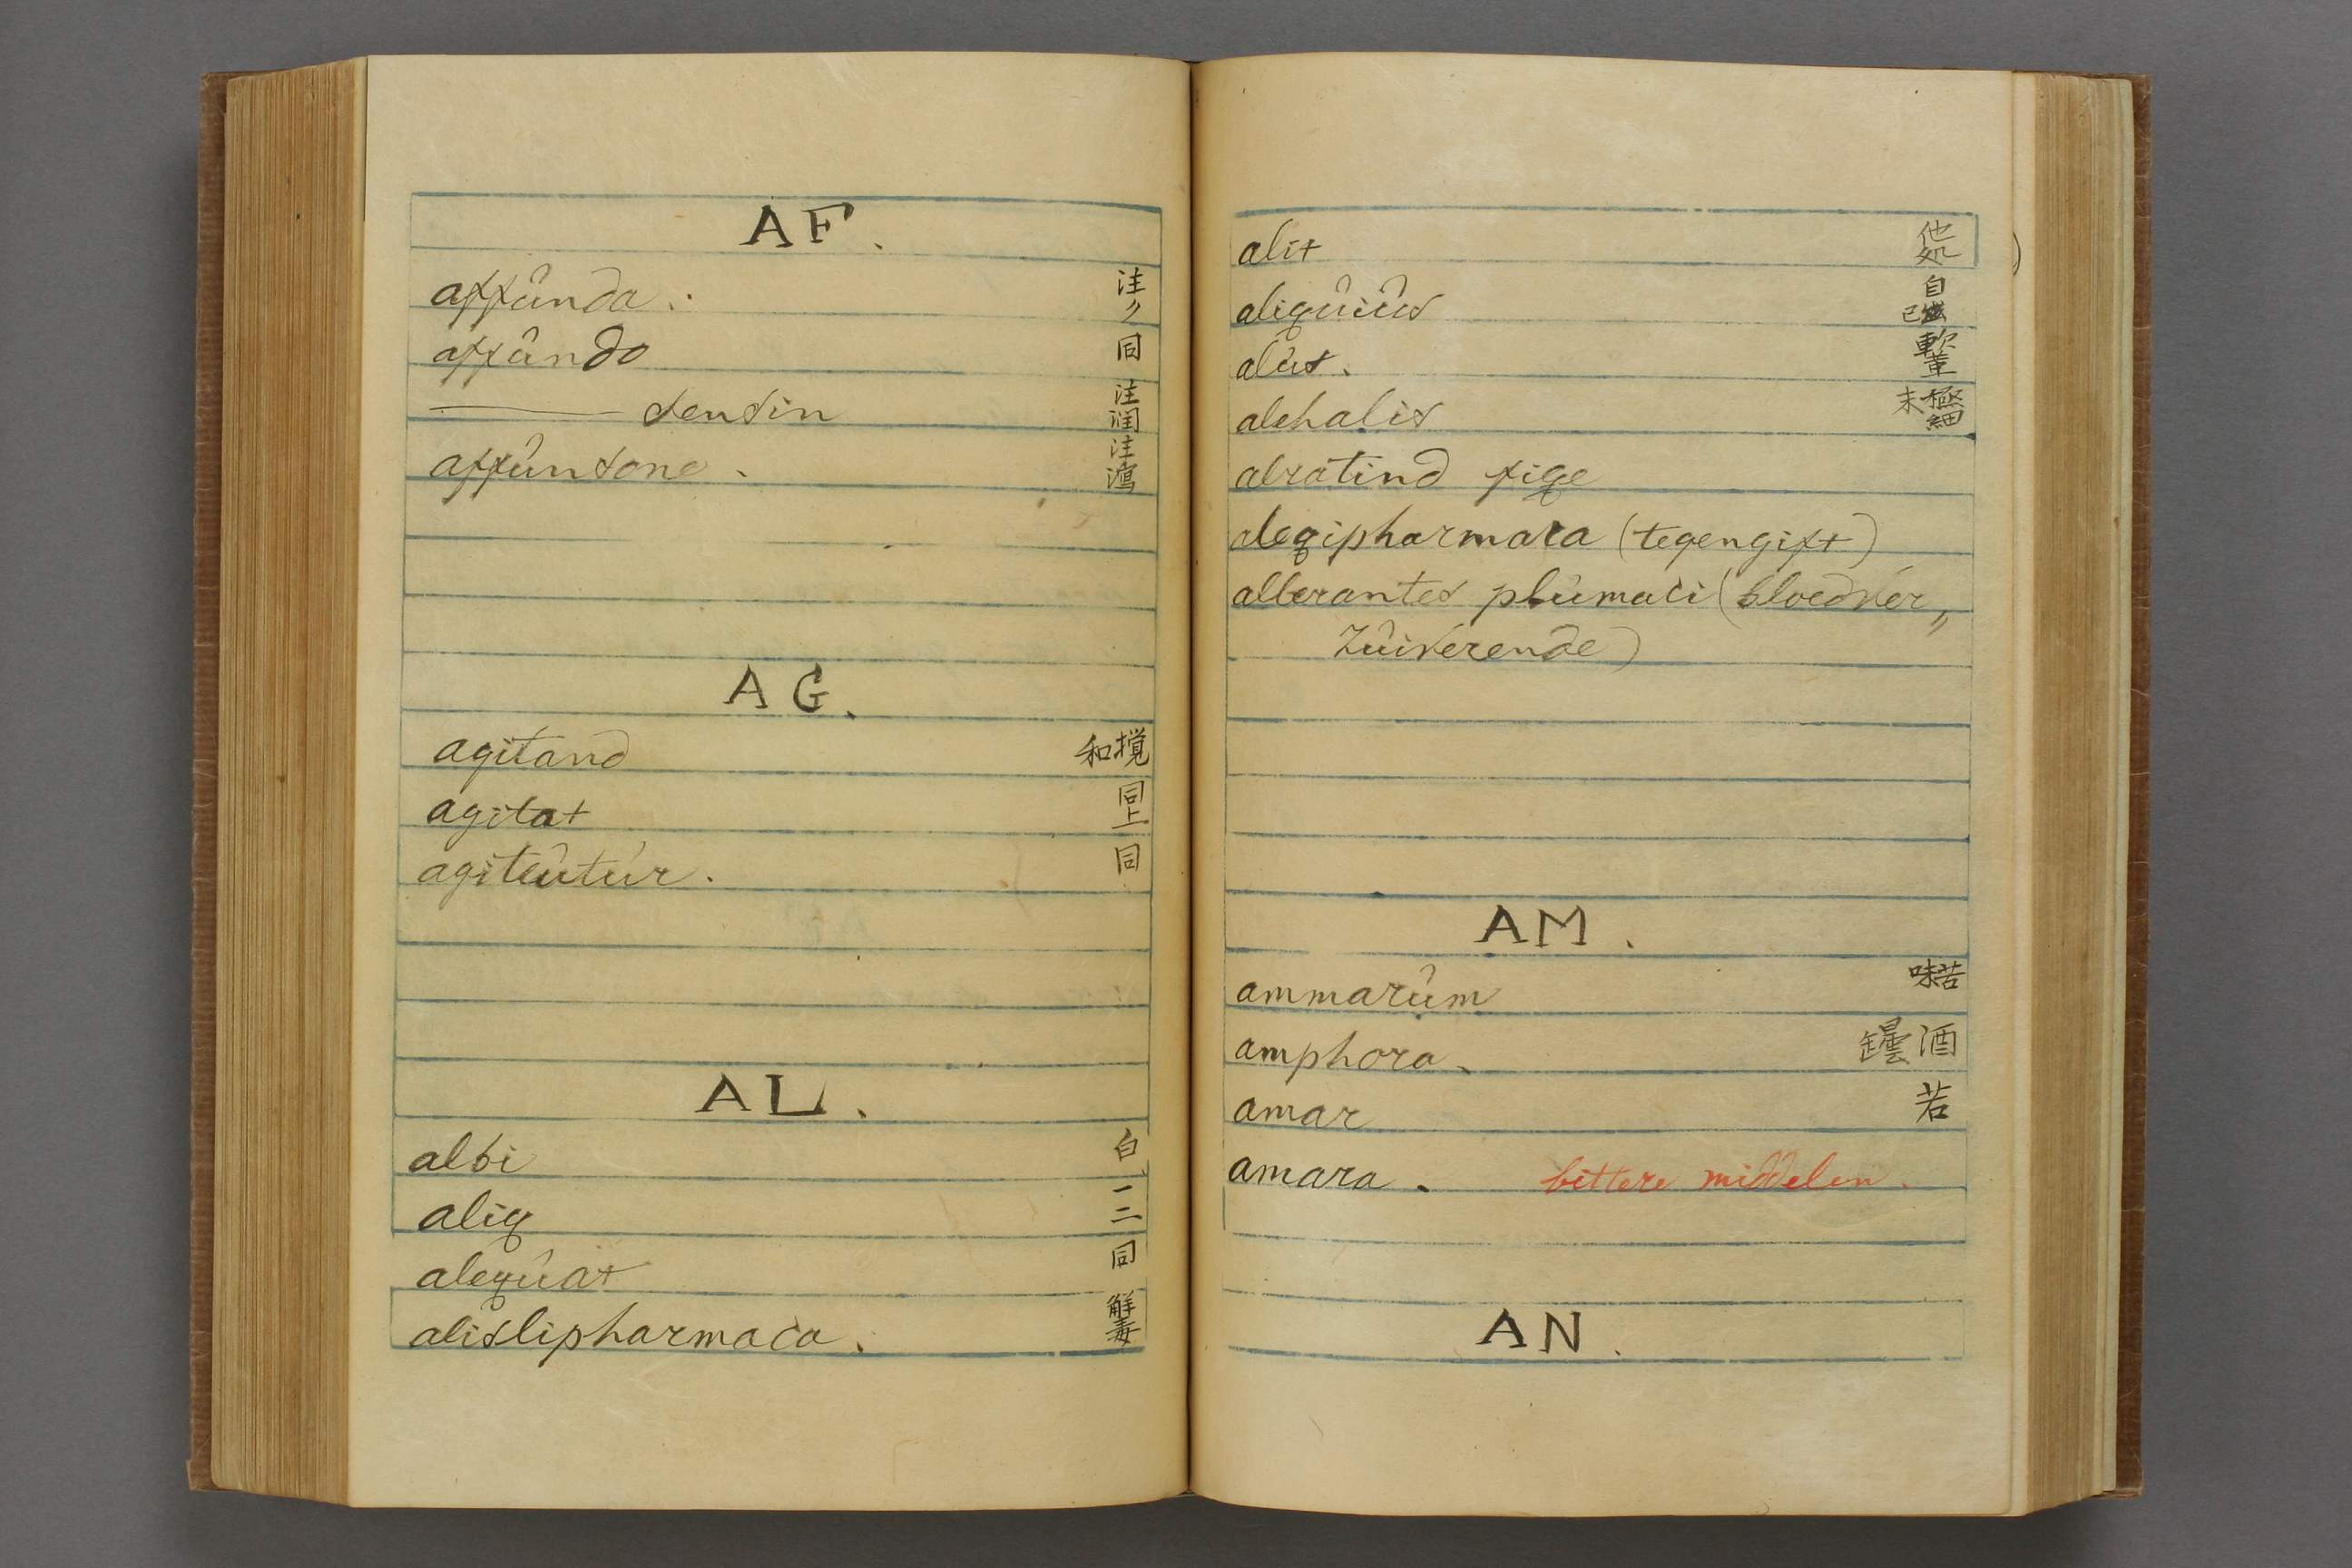 AF.
affûnda. 注ク
affûndo 同
—— sensin 注潤
affûnsone. 注瀉
AG.
agitand 攪和
agitat 同上
agiteûtúr. 同
AL.
albi 白
aliq 一二
alequat 同
alislipharmaca. 解毒
alit 他処
aliqûiûs 自己
alus.
alehalis 極細末
alratind fige
aleqipharmara (tegengift)
alberantes plûmaci (bloedver„
Zûiverende)
AM.
ammarûm 苦味
amphora. 酒罎
amar 苦
amara. bittere middelen.
AN.